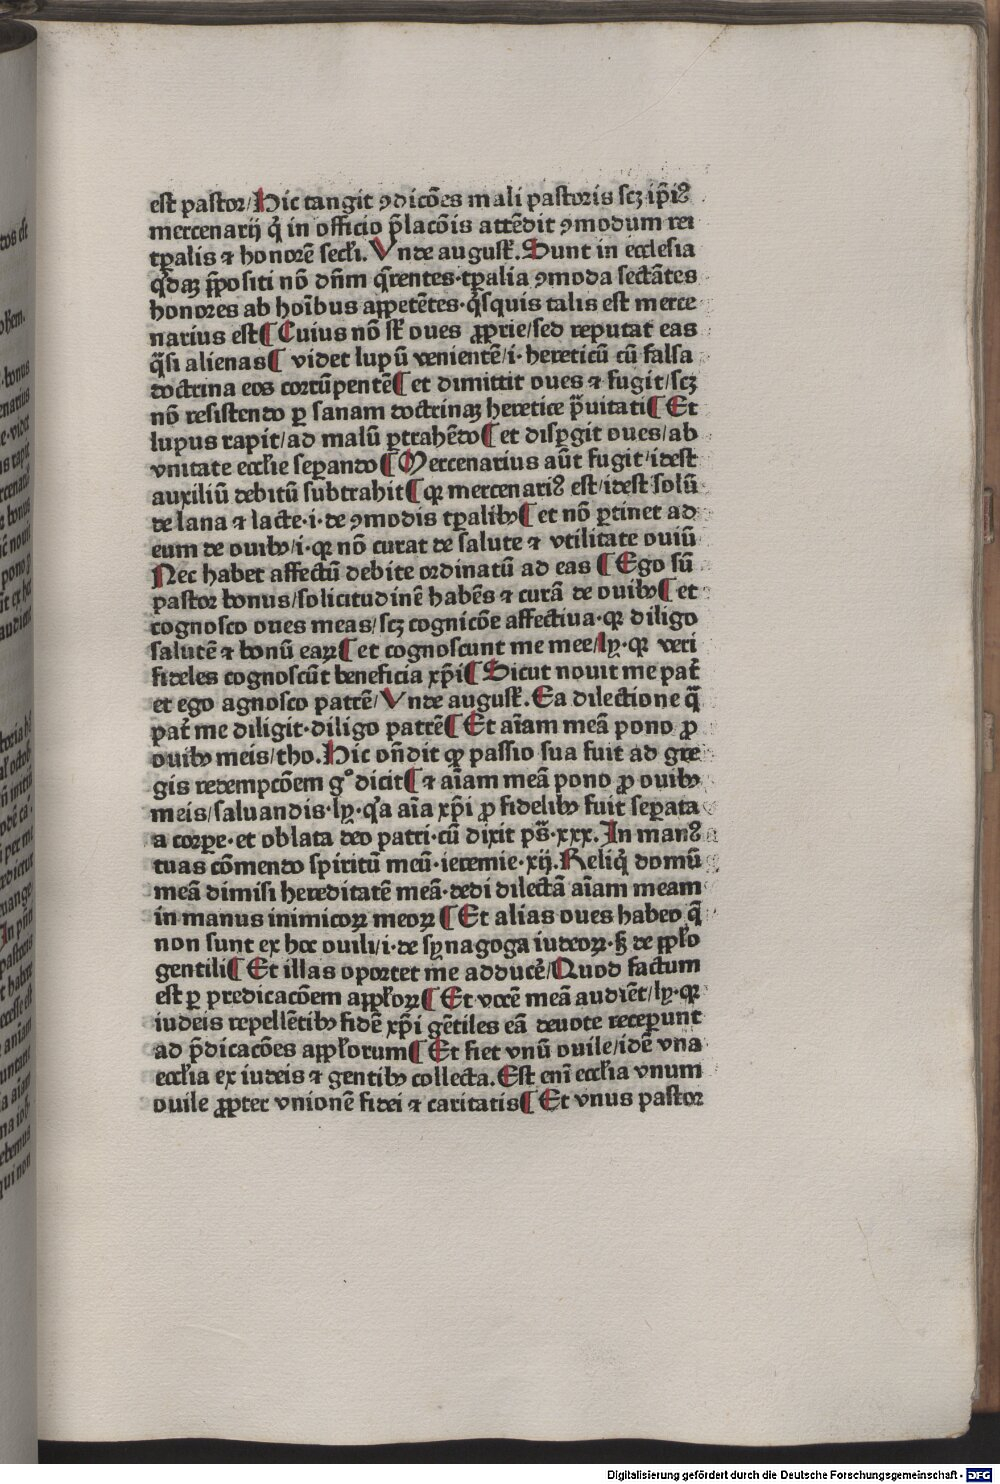 est pastor/Hic tangit ꝯdicōes mali pastoris scꝫ ip̄iꝰ
mercenarij q̇ in officio p̄lacōis attēdit ꝯmodum rei
tꝑalis ⁊ honorē secłi. Vnde augusł. Sunt in ecclesia
q̄daꝫ p̄positi nō dn̄m q̄rentes·tꝑalia ꝯmoda sectātes
honores ab hoībus appetētes·q̇squis talis est merce
narius est¶ Cuius nō sł oues ꝓprie/sed reputat eas
q̄si alienas¶ videt lupū venientē/i·hereticū cū falsa
doctrina eos corrūpentē¶ et dimittit oues ⁊ fugit/scꝫ
nō resistendo ꝑ sanam doctrinaꝫ heretice p̄uitati¶ Et
lupus rapit/ad malū ꝑtrahēdo¶ et dispgit oues/ab
vnitate eccłie seꝑando¶ Mercenarius aūt fugit/idest
auxiliū debitū subtrahit¶ qꝛ mercenariꝰ est/idest solū
de lana ⁊ lacte·i·de ꝯmodis tꝑalibꝫ¶ et nō ꝑtinet ad
eum de ouibꝫ/i·qꝛ nō curat de salute ⁊ vtilitate ouiū
Nec habet affectū debite ordinatū ad eas ¶ Ego sū
pastor bonus/solicitudinē habēs ⁊ curā de ouibꝫ¶ et
cognosco oues meas/scꝫ cognicōe affectiua·qꝛ diligo
salutē ⁊ bonū eaꝝ¶ et cognoscunt me mee/lꝫ·qꝛ veri
fideles cognoscūt beneficia xp̄i¶ Sicut nouit me pat̄
et ego agnosco patrē/Vnde augusł. Ea dilectione q̄
pat̄ me diligit·diligo patrē¶ Et aīam meā pono ꝓ
ouibꝫ meis/tho. Hic on̄dit qꝫ passio sua fuit ad gre
gis redempcōem gͦ dicit¶ ⁊ aīam meā pono ꝓ ouibꝫ
meis/saluandis·lꝫ·qͣa aīa xp̄i ꝓ fidelibꝫ fuit seꝑata
a corꝑe·et oblata deo patri·cū dixit pš·xxx. In manꝰ
tuas cōmendo spiritū meū·ieremie·xij. Reliq̇ domū
meā dimisi hereditatē meā·dedi dilectā aīam meam
in manus inimicoꝝ meoꝝ ¶ Et alias oues habeo q̄
non sunt ex hoc ouili/i·de synagoga iudeoꝝ·sꝫ de ppło
gentili¶ Et illas oportet me adducē/Quod factum
est ꝑ predicacōem appłoꝝ¶ Et vocē meā audiēt/lꝫ·qꝛ
iudeis repellētibꝫ fidē xp̄i gētiles eā deuote receꝑunt
ad p̄dicacōes appłorum¶ Et fiet vnū ouile/idē vna
eccłia ex iudeis ⁊ gentibꝫ collecta. Est eni eccłia vnum
ouile ꝓpter vnionē fidei ⁊ caritatis¶ Et vnus pastor
Digitalisierung gefördert durch die Deutsche Forschungsgemeinschaft - DFG